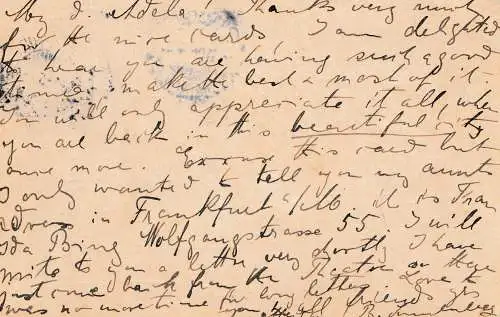 My d. Adele! Thanks very much
for the nice cards I am delighted
to hear you are having such a good
time make the best & most of it.
You will only appreciate it all, when
you are back in this beautiful city
once more. Excuse this card but
I only wanted to tell you my aunts
adress in Frankfurt a/M. it is Frau
Ida Bing Wolfgangstrasse 55. I will
write to you a letter very shortly I have
just come back from the Theatre so there
was no more time for long letter. Love to
you all